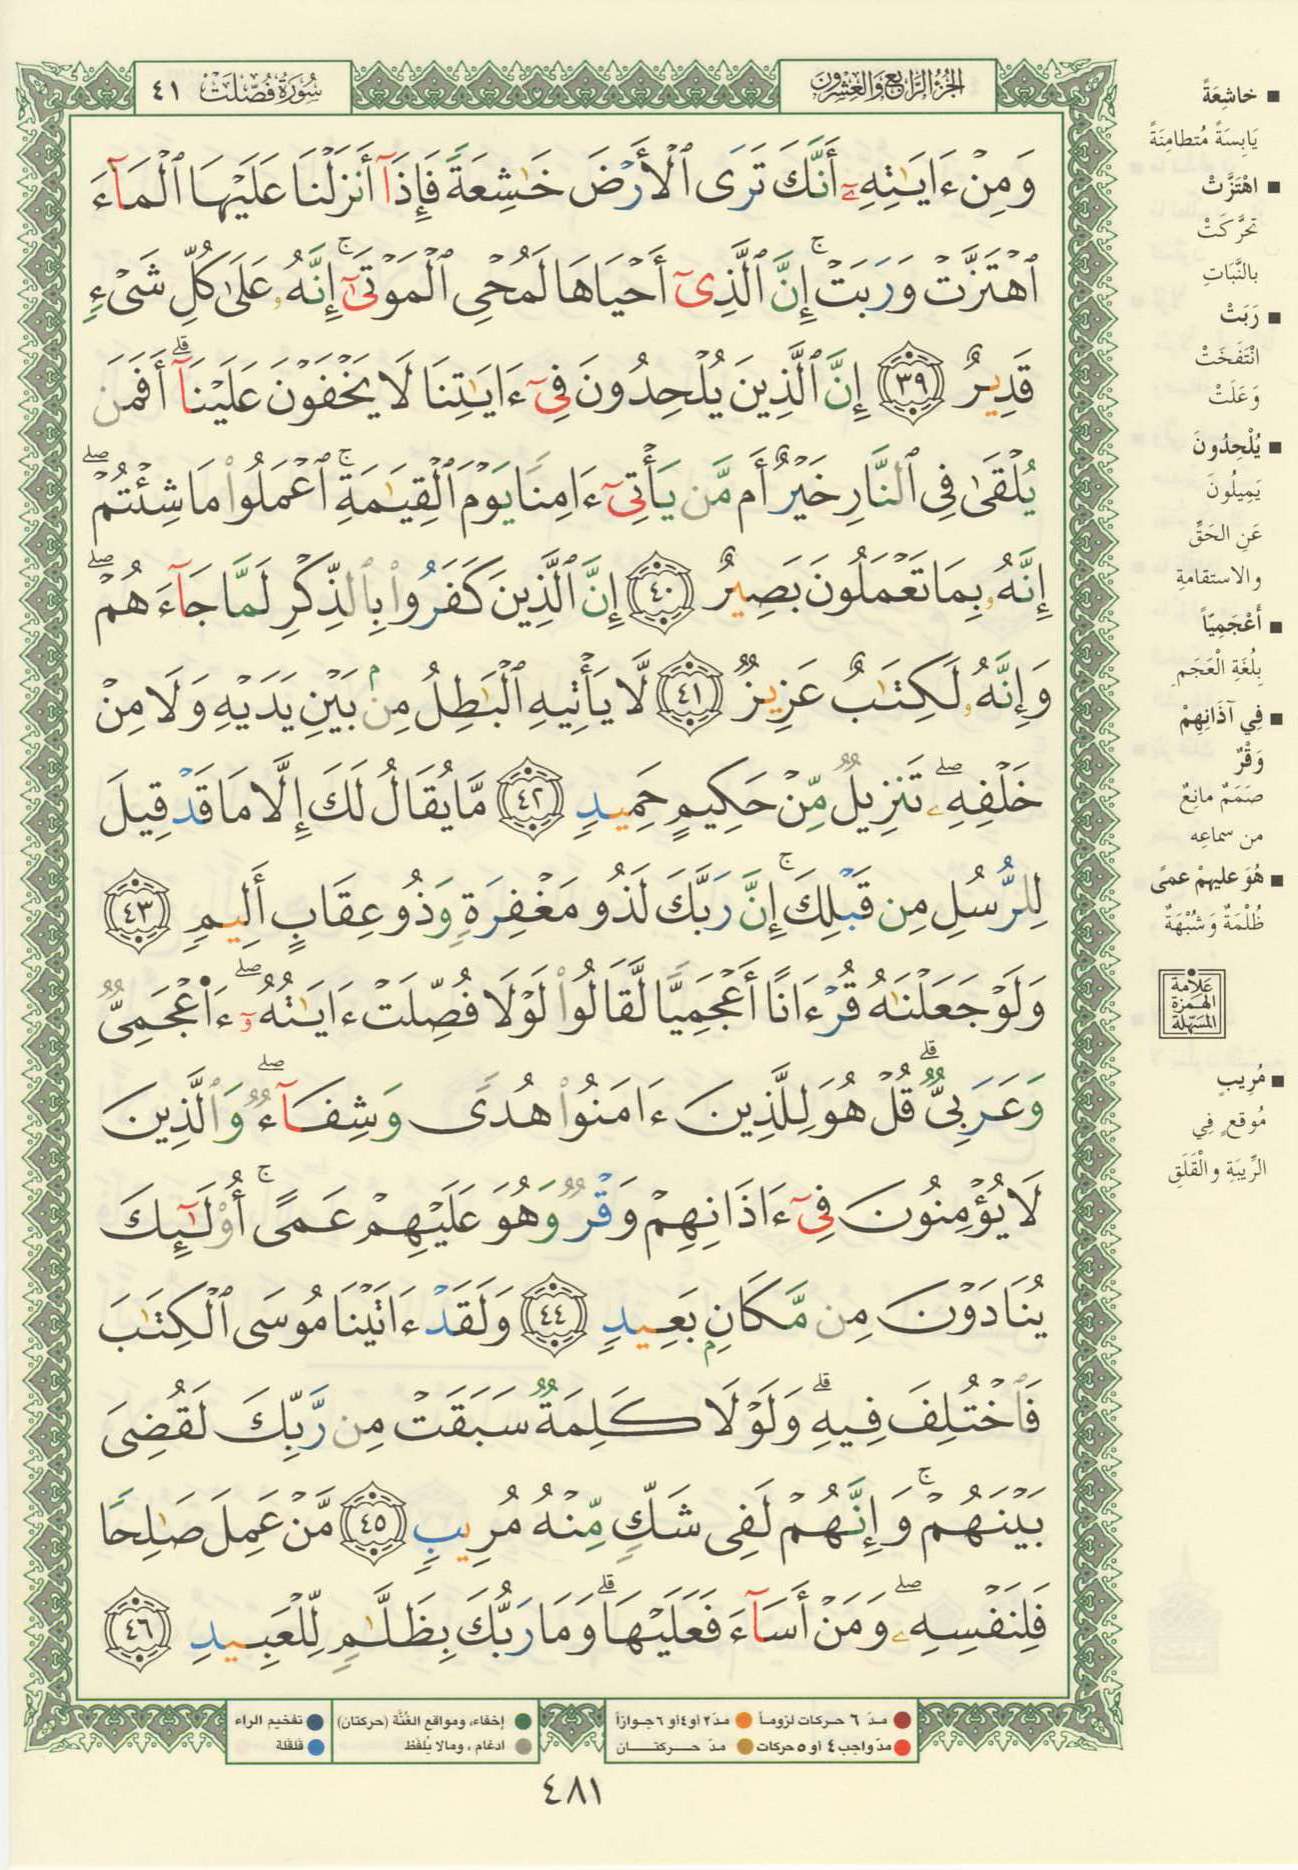 سُورَةُ فُصِّلَتْ ٤١
الجُزْءُ الرَّابِعُ وَالعِشْرُونَ
وَمِنْ ءَايَـٰتِهِۦٓ أَنَّكَ تَرَى ٱلْأَرْضَ خَـٰشِعَةً فَإِذَآ أَنزَلْنَا عَلَيْهَا ٱلْمَآءَ
ٱهْتَزَّتْ وَرَبَتْ ۚ إِنَّ ٱلَّذِىٓ أَحْيَاهَا لَمُحْىِ ٱلْمَوْتَىٰٓ ۚ إِنَّهُۥ عَلَىٰ كُلِّ شَىْءٍ
قَدِيرٌ ٣٩ إِنَّ ٱلَّذِينَ يُلْحِدُونَ فِىٓ ءَايَـٰتِنَا لَا يَخْفَوْنَ عَلَيْنَآ ۗ أَفَمَن
يُلْقَىٰ فِى ٱلنَّارِ خَيْرٌ أَم مَّن يَأْتِىٓ ءَامِنًا يَوْمَ ٱلْقِيَـٰمَةِ ۚ ٱعْمَلُوا۟ مَا شِئْتُمْ ۖ
إِنَّهُۥ بِمَا تَعْمَلُونَ بَصِيرٌ ٤٠ إِنَّ ٱلَّذِينَ كَفَرُوا۟ بِٱلذِّكْرِ لَمَّا جَآءَهُمْ ۖ
وَإِنَّهُۥ لَكِتَـٰبٌ عَزِيزٌ ٤١ لَّا يَأْتِيهِ ٱلْبَـٰطِلُ مِنۢ بَيْنِ يَدَيْهِ وَلَا مِنْ
خَلْفِهِۦ ۖ تَنزِيلٌ مِّنْ حَكِيمٍ حَمِيدٍ ٤٢ مَّا يُقَالُ لَكَ إِلَّا مَا قَدْ قِيلَ
لِلرُّسُلِ مِن قَبْلِكَ ۚ إِنَّ رَبَّكَ لَذُو مَغْفِرَةٍ وَذُو عِقَابٍ أَلِيمٍ ٤٣
وَلَوْ جَعَلْنَـٰهُ قُرْءَانًا أَعْجَمِيًّا لَّقَالُوا۟ لَوْلَا فُصِّلَتْ ءَايَـٰتُهُۥٓ ۖ ءَا۬عْجَمِىٌّ
وَعَرَبِىٌّ ۗ قُلْ هُوَ لِلَّذِينَ ءَامَنُوا۟ هُدًى وَشِفَآءٌ ۖ وَٱلَّذِينَ
لَا يُؤْمِنُونَ فِىٓ ءَاذَانِهِمْ وَقْرٌ وَهُوَ عَلَيْهِمْ عَمًى ۚ أُو۟لَـٰٓئِكَ
يُنَادَوْنَ مِن مَّكَانٍۭ بَعِيدٍ ٤٤ وَلَقَدْ ءَاتَيْنَا مُوسَى ٱلْكِتَـٰبَ
فَٱخْتُلِفَ فِيهِ ۗ وَلَوْلَا كَلِمَةٌ سَبَقَتْ مِن رَّبِّكَ لَقُضِىَ
بَيْنَهُمْ ۚ وَإِنَّهُمْ لَفِى شَكٍّ مِّنْهُ مُرِيبٍ ٤٥ مَّنْ عَمِلَ صَـٰلِحًا
فَلِنَفْسِهِۦ ۖ وَمَنْ أَسَآءَ فَعَلَيْهَا ۗ وَمَا رَبُّكَ بِظَلَّـٰمٍ لِّلْعَبِيدِ ٤٦
■ خاشِعَةً
يَابِسَةً مُتطامِنَةً
■ اهْتَزَّتْ
تَحَرَّكَتْ
بالنَّبَاتِ
■ رَبَتْ
انْتَفَخَتْ
وَعَلَتْ
■ يُلْحِدُونَ
يَمِيلُونَ
عَنِ الحَقِّ
والاستقامةِ
■ أعْجَمِيّاً
بِلُغَةِ الْعَجَمِ
■ فِي آذَانِهِمْ
وَقْرٌ
صَمَمٌ مانِعٌ
من سماعِه
■ هُوَ عليهِمْ عمىً
ظُلْمَةٌ وَشُبْهَةٌ
عَلَامَة
الهَمزَة
المسَهّلة
■ مُرِيبٍ
مُوقعٍ فِي
الرِّيبَةِ والْقَلَقِ
مدّ ٦ حركات لزوماً
مدّ ٢ أو ٤ أو ٦ جوازاً
إخفاء، ومواقع الغُنَّة (حركتان)
تفخيم الراء
مدّ واجب ٤ أو ٥ حركات
مدّ حـركتـان
ادغام ، ومالا يُلفظ
قلقلة
٤٨١